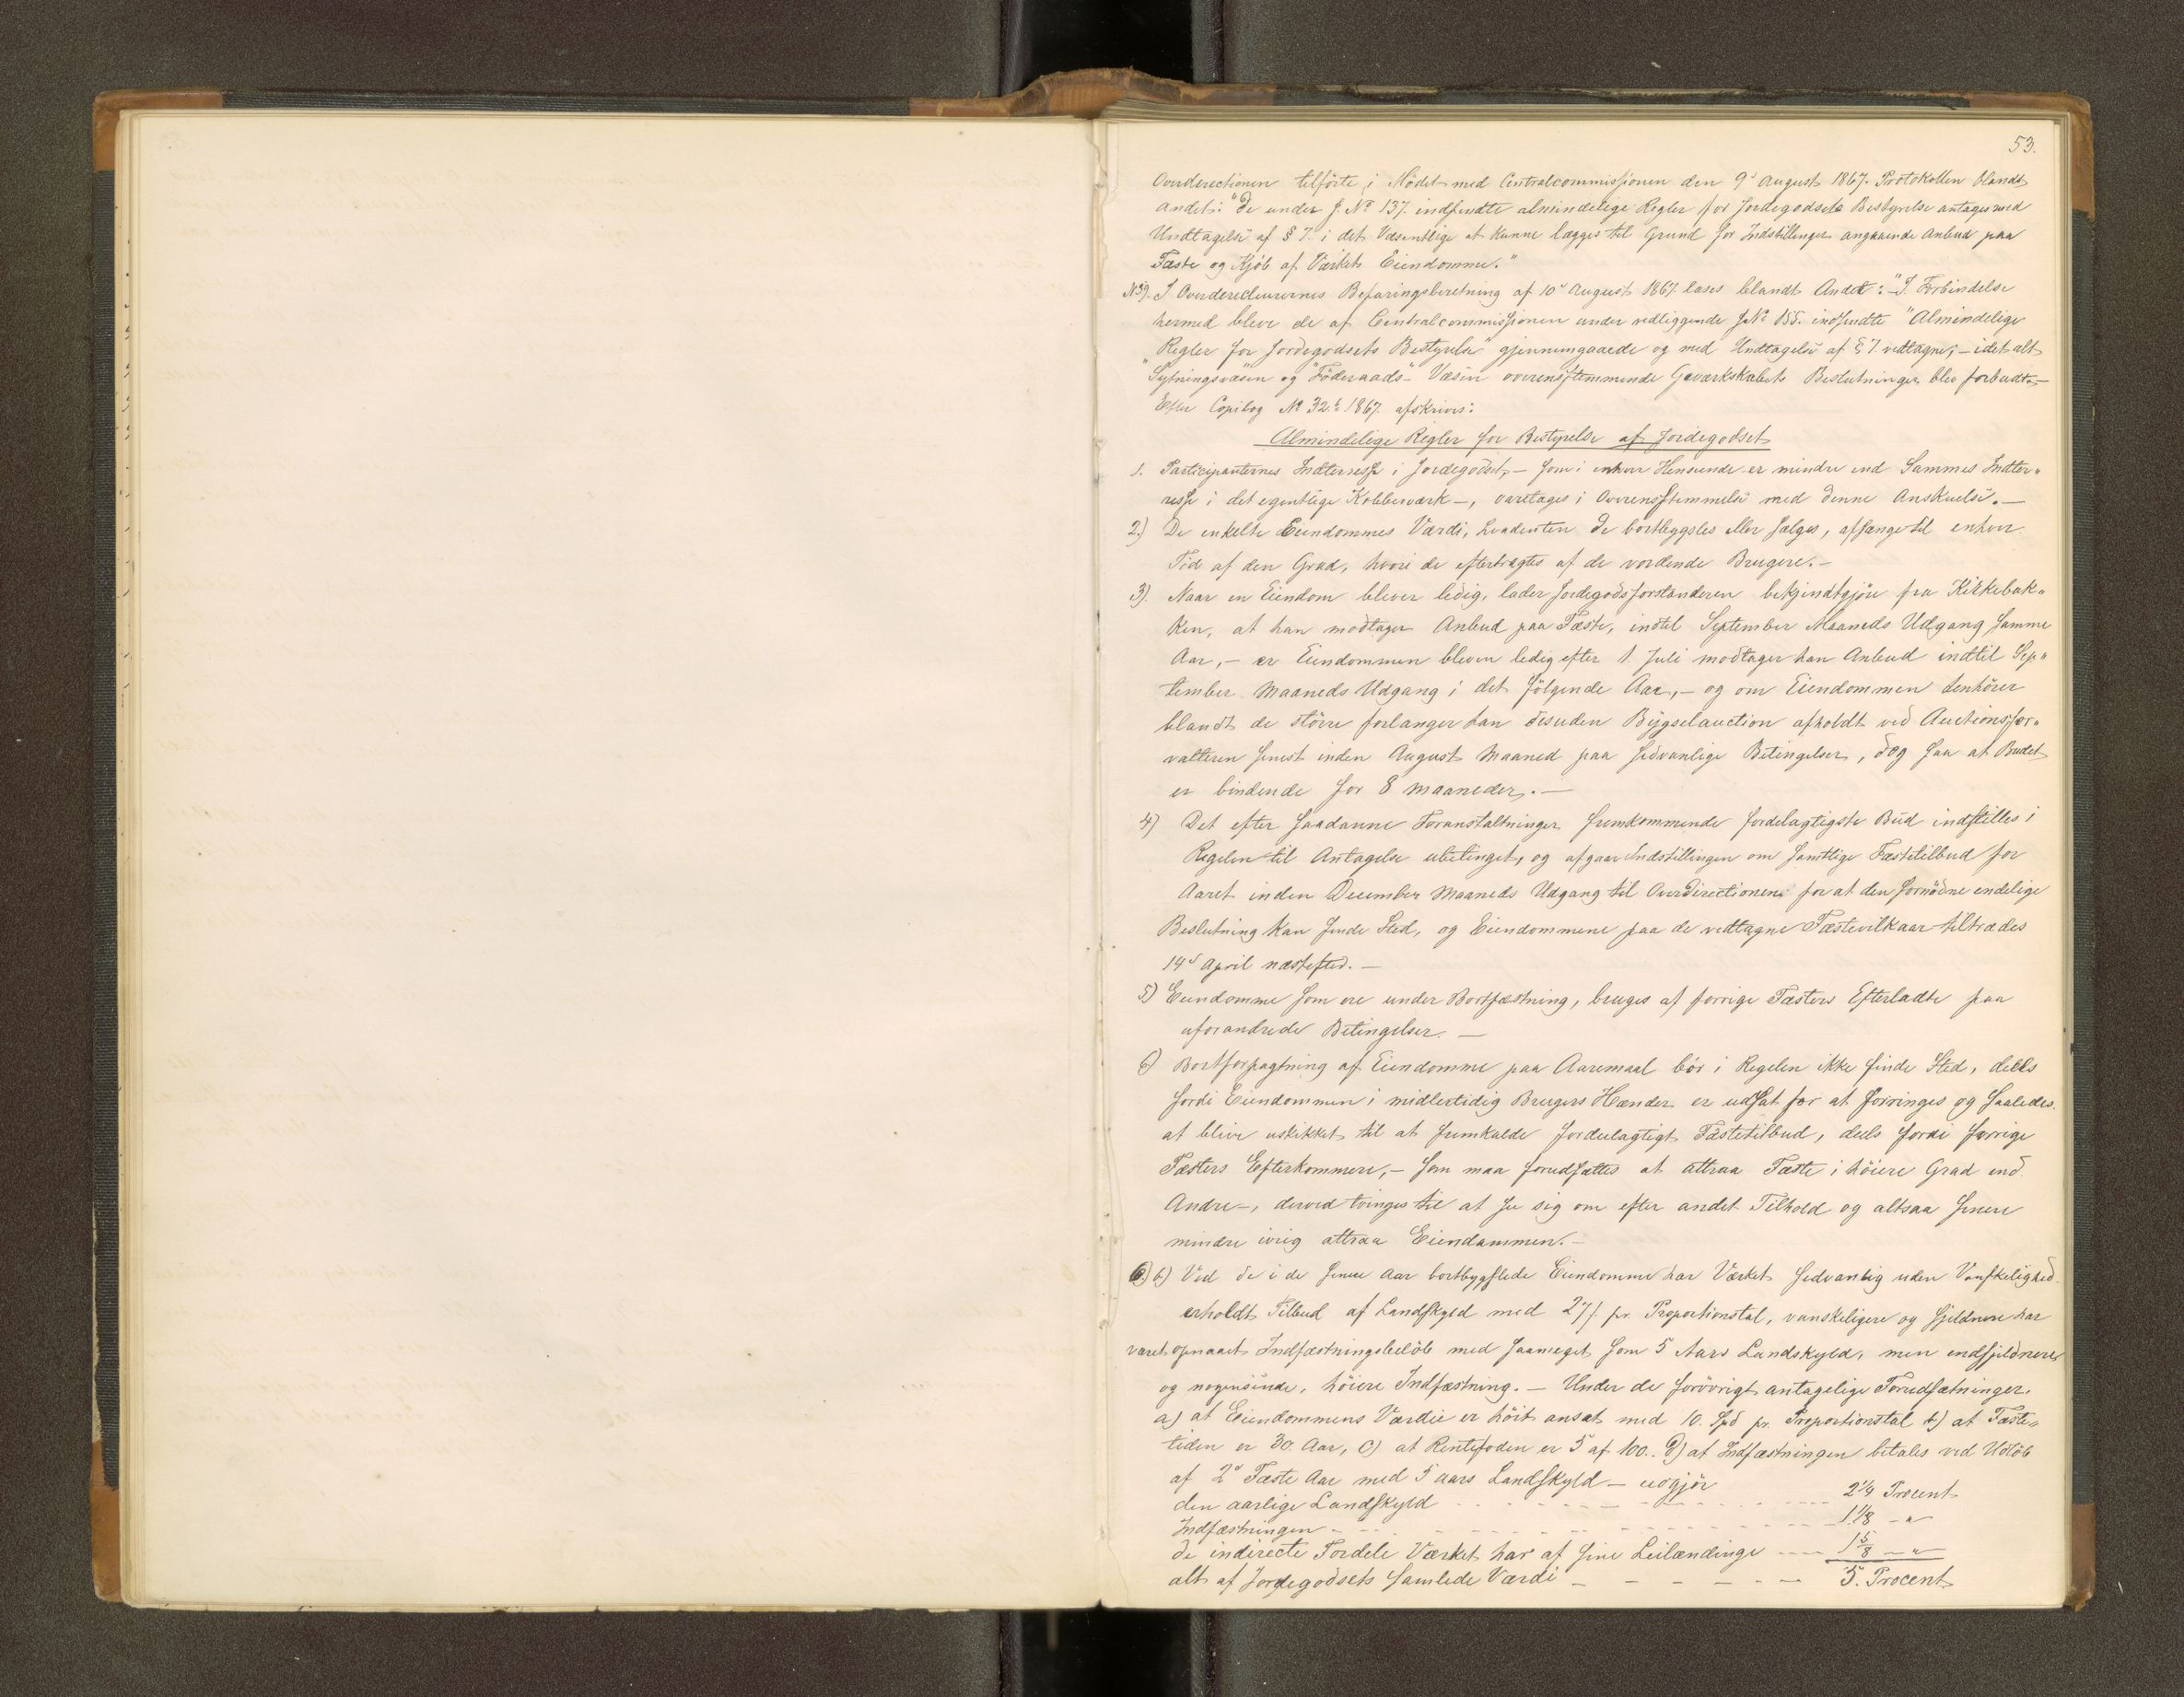 53.
Overdirectionen tilförte i Mödet med Centralcommissionen den 9d August 1867. Protokollen blandt
andet: "de under J. No 137. indsendte almindelige Regler for Jordegodsets Bestyrelse antages med
Undtagelse af § 7. i det Væsentlige at kunne lægges til Grund for Indstillinger angaaende Anbud paa
Fæste og Kjöb af Værkets Eiendomme."
I Overdirecteurernes Befaringsberetning af 10d August 1867. læses blandt Andet: "I Forbindelse
hermed bleve de af Centralcommissionen under vedliggende JNo 155. indsendte "Almindelige
"Regler for Jordegodsets Bestyrelse" gjennemgaaede og med Undtagelse af § 7. vedtagne; – idet alt
"Sytningsvæsen og "Föderaads"- Væsen overensstemmende Geværkskabets Beslutninger blev forbudt. –
Efter Copibog No 32. 1867. afskrives:
Almindelige Regler for Bestyrelse af Jordegodset
1. Participanternes Indteresse i Jordegodset, – som i enhver Henseende er mindre end Sammes Indter"
resse i det egentlige Kobberværk –, varetages i Overensstemmelse med denne Anskuelse. –
2.) De enkelte Eiendommes Værdi, hvadenten de bortbygsles eller sælges, afhænge til enhver
Tid af den Grad, hvori de eftertragtes af de vordende Brugere. –
3). Naar en Eiendom bliver ledig, lader Jordegodsforstanderen bekjendtgjöre fra Kirkebak"
ken, at han modtager Anbud paa Fæste, indtil September Maaneds Udgang samme
Aar, – er Eiendommen bleven ledig efter 1. Juli modtager han Anbud indtil Sep"
tember Maaneds Udgang i det fölgende Aar, – og om Eiendommen tenhörer
blandt de större forlanger han desuden Bygselauction afholdt ved Auctionsfor"
valteren senest inden August Maaned paa sedvanlige Betingelser, dog saa at Budet
er bindende for 8 Maaneder. –
4) Det efter saadanne Foranstaltninger fremkommende fordelagtigste Bud indstilles i
Regelen til Antagelse ubetinget, og afgaar Indstillingen om samtlige Fæstetilbud for
Aaret inden December Maaneds Udgang til Overdirectionen for at den fornödne endelige
Beslutning kan finde Sted, og Eiendommene paa de vedtagne Fæstevilkaar tiltrædes
14d April næstefter. –
5) Eiendomme som ere under Bortfæstning, bruges af forrige Fæsters Efterladte paa
uforandrede Betingelser. –
6) Bortforpagtning af Eiendomme paa Aaremaal bör i Regelen ikke finde Sted, deels
fordi Eiendommen i midlertidig Brugers Hænder er udsat for at forringes og saaledes
at blive uskikket til at fremkalde fordeelagtigt Fæstetilbud, deels fordi forrige
Fæsters Efterkommere, – som maa forudsættes at attraa Fæste i höiere Grad end
Andre –, derved tvinges til at see sig om efter andet Tilhold og altsaa senere
mindre ivrig attraa Eiendommen. –
6) Ved de i de senere Aar bortbygslede Eiendomme har Værket sedvanlig uden Vanskelighed
erholdt Tilbud af Landskyld med 27 ß. pr. Proportionstal, vanskeligere og sjeldnere har
været opnaaet Indfæstningsbelöb med saameget som 5 Aars Landskyld, men endsjeldnere
og nogensinde, höiere Indfæstning. – Under de forövrigt antagelige Forudsætninger.
a) at Eiendommens Værdie er höit ansat med 10. Spd pr. Proportionstal b) at Fæste"
tiden er 30. Aar, c) at Rentefoden er 5 af 100.. d) at Indfæstningen betales ved Udlöb
af 2d Fæste Aar med 5 aars Landskyld – udgjör
den aarlige Landskyld - - - - 2 1/4 Procent
Indfæstningen - - - - 1 1/8 - "
de indirecte Fordele Værket har af sine Leilændinge - - - 1 5/8 - "
alt af Jordegodsets samlede Værdi - - - - 5. Procent